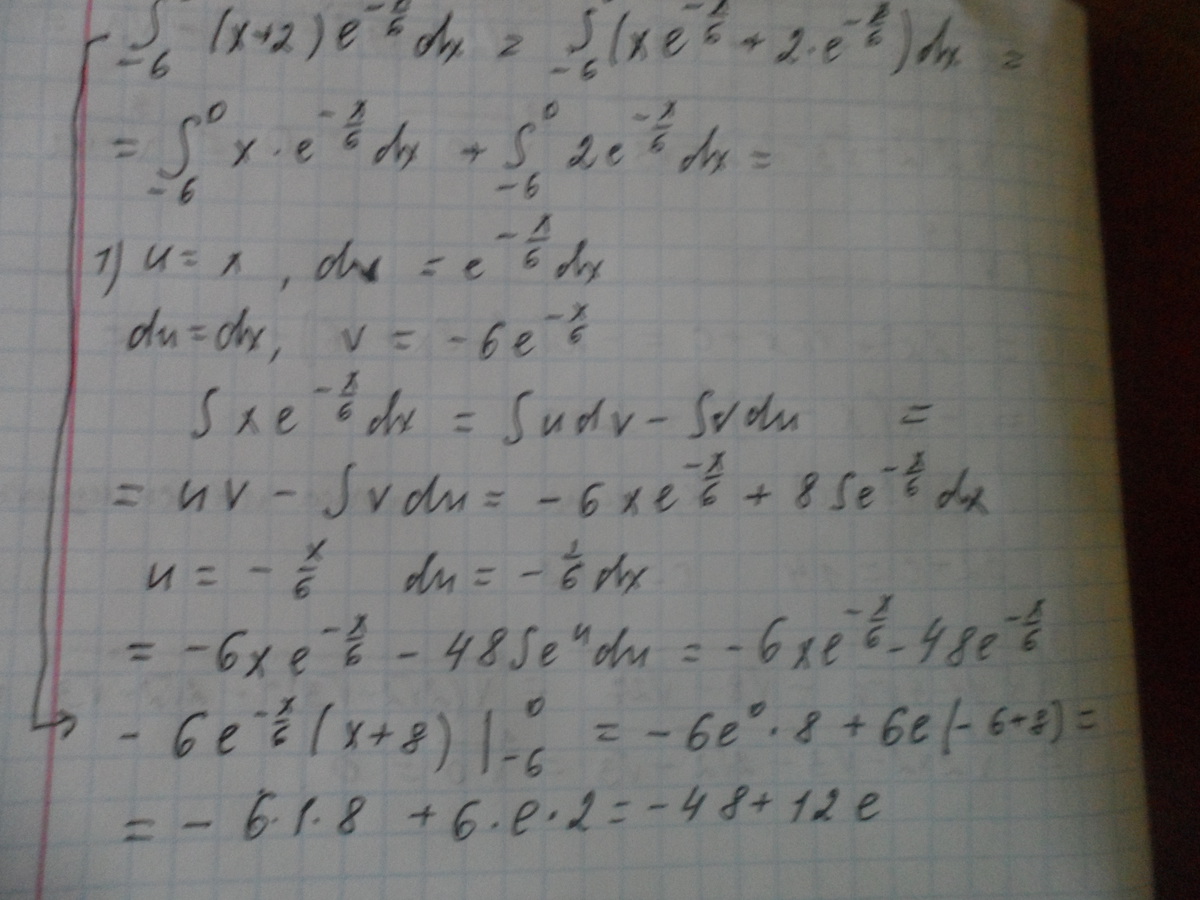 ∫_{-6} (x+2) e^{-x/6} dx = ∫_{-6} (x e^{-x/6} + 2·e^{-x/6}) dx =
= ∫_{-6}^{0} x · e^{-x/6} dx + ∫_{-6}^{0} 2e^{-x/6} dx =
1) u = x , dv = e^{-x/6} dx
du = dx, v = -6e^{-x/6}
∫ x e^{-x/6} dx = ∫ u dv - ∫ v du =
= uv - ∫ v du = -6xe^{-x/6} + 8∫e^{-x/6} dx
u = -x/6 du = -1/6 dx
= -6xe^{-x/6} - 48∫e^u du = -6xe^{-x/6} - 48e^{-x/6}
-6e^{-x/6} (x+8) |_{-6}^{0} = -6e^0 · 8 + 6e(-6+8) =
= -6·1·8 + 6·e·2 = -48 + 12e